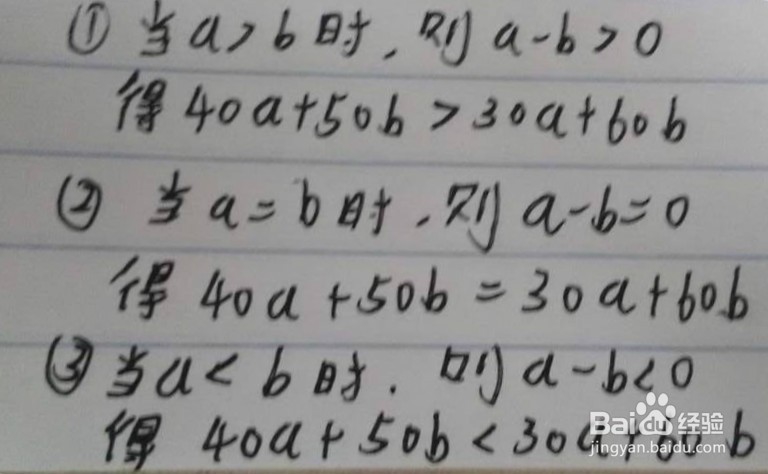 ① 当a>b时,则a-b>0
得40a+50b>30a+60b
② 当a=b时,则a-b=0
得40a+50b=30a+60b
③ 当a<b时.则a-b<0
得40a+50b<30a+60b
Baidu经验
jingyan.baidu.com